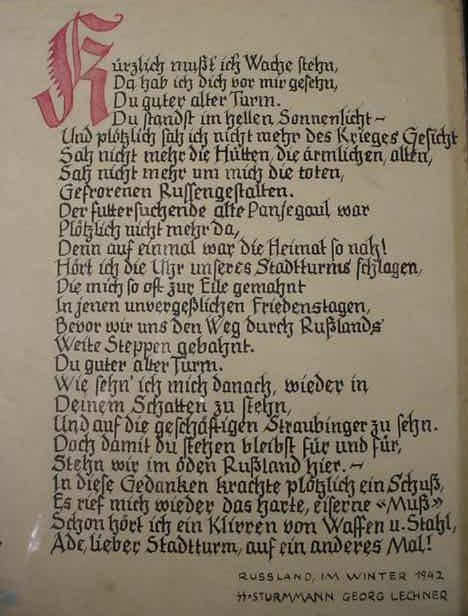 Kürzlich mußt' ich Wache stehn,
Da hab ich dich vor mir gesehn,
Du guter alter Turm.
Du standst im hellen Sonnenlicht ~
Und plötzlich sah ich nicht mehr des Krieges Gesicht
Sah nicht mehr die Hütten, die ärmlichen, alten,
Sah nicht mehr um mich die toten,
Gefrorenen Russengestalten.
Der futtersuchende alte Panjegaul war
Plötzlich nicht mehr da,
Denn auf einmal war die Heimat so nah!
Hört ich die Uhr unseres Stadtturms schlagen,
Die mich so oft zur Eile gemahnt
In jenen unvergeßlichen Friedenstagen,
Bevor wir uns den Weg durch Rußlands
Weite Steppen gebahnt.
Du guter alter Turm.
Wie sehn' ich mich danach, wieder in
Deinem Schatten zu stehn,
Und auf die geschäftigen Straubinger zu sehn.
Doch damit du stehen bleibst für und für,
Stehn wir im öden Rußland hier. ~
In diese Gedanken krachte plötzlich ein Schuß,
Es rief mich wieder das harte, eiserne «Muß»
Schon hört ich ein Klirren von Waffen u. Stahl,
Ade, lieber Stadtturm, auf ein anderes Mal!
RUSSLAND, IM WINTER 1942
STURMMANN GEORG LECHNER